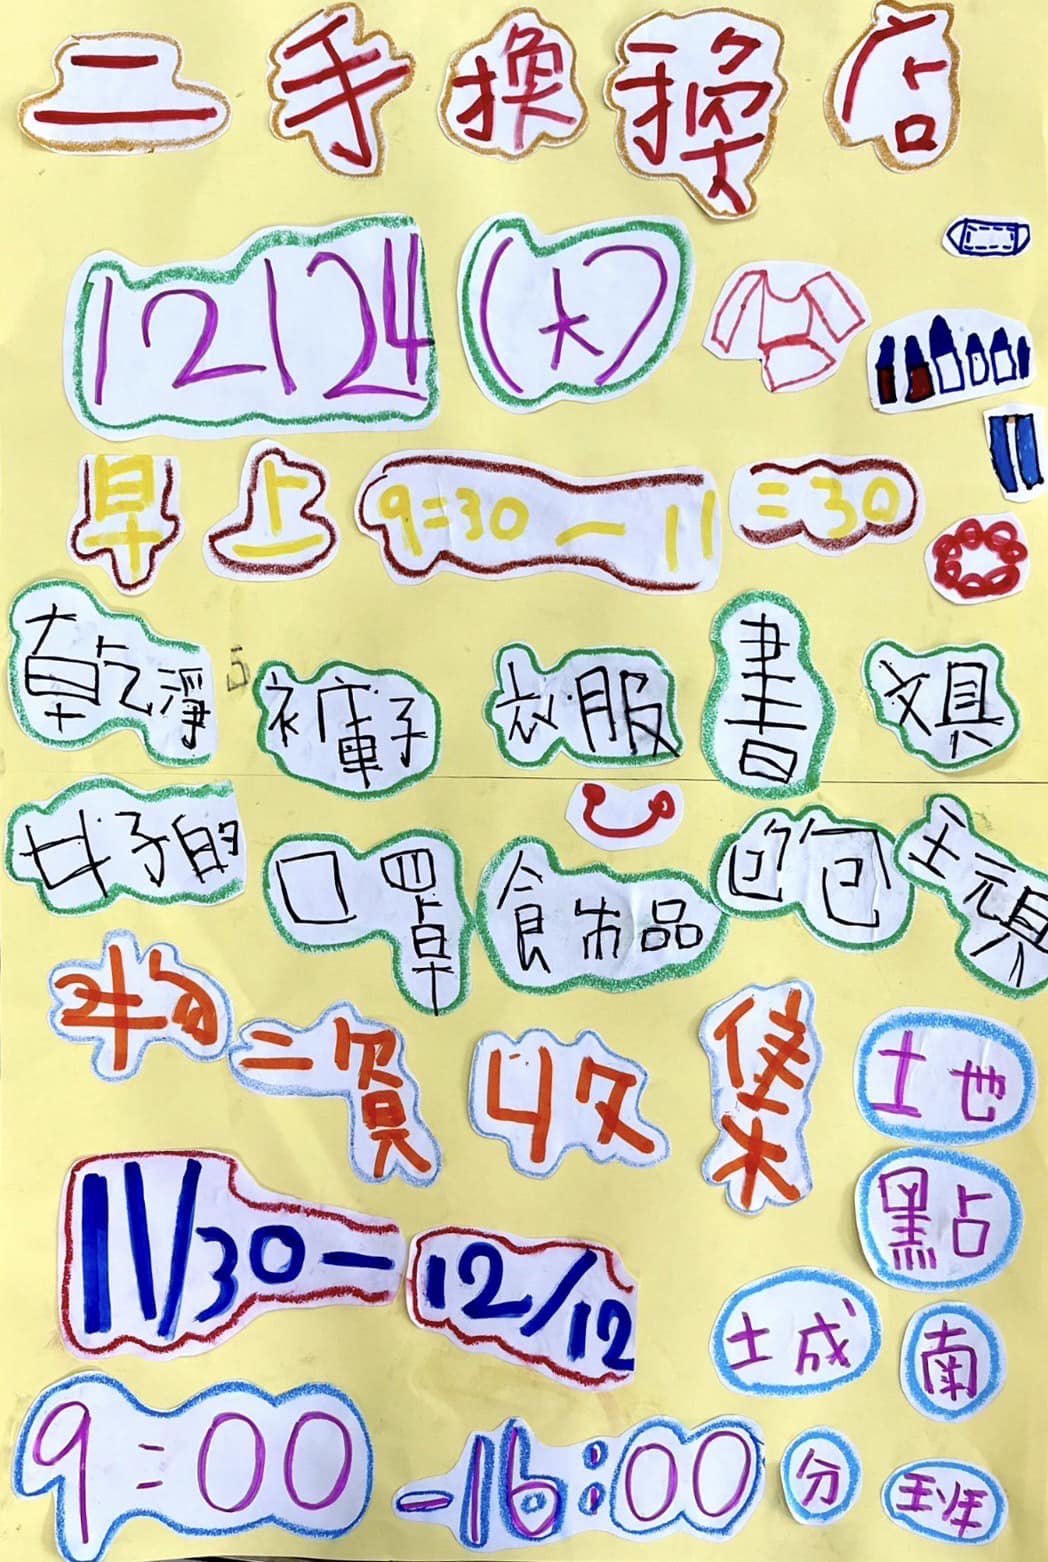 二手換換店
12/24 (大)
早上 9:30 — 11:30
乾淨 褲子 衣服 書 文具
好的 口罩 食品 包包 玩具
物資收集
地點
11/30 — 12/12
土城 南
9:00 - 16:00 分班